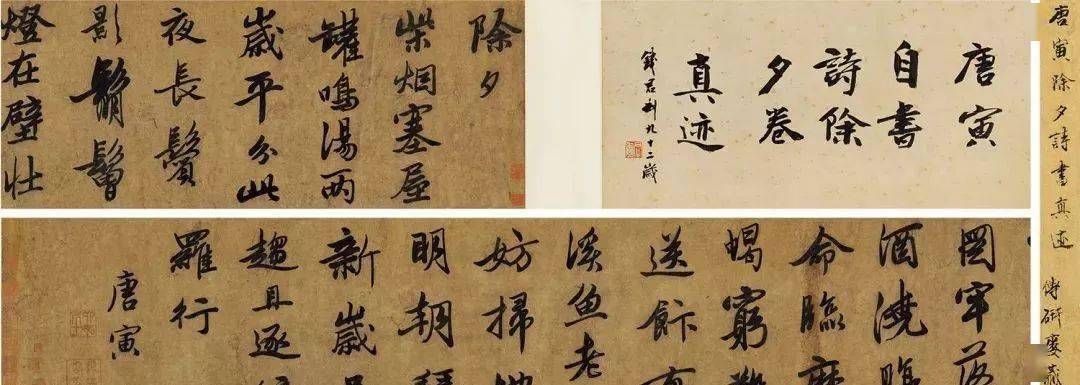 唐寅除夕詩書真迹
唐寅
自書
詩除
夕卷
真迹
錢君匋九十二歲
除夕
柴烟塞屋
罐鳴湯兩
歲平分此
夜長鬢
影鬅鬙
燈在壁壯
圖牢落
酒澆腸
命臨磨
蝎窮難
送飰有
溪魚老
妨掃地
明朝拜
新歲
趨且逐
羅行
唐寅